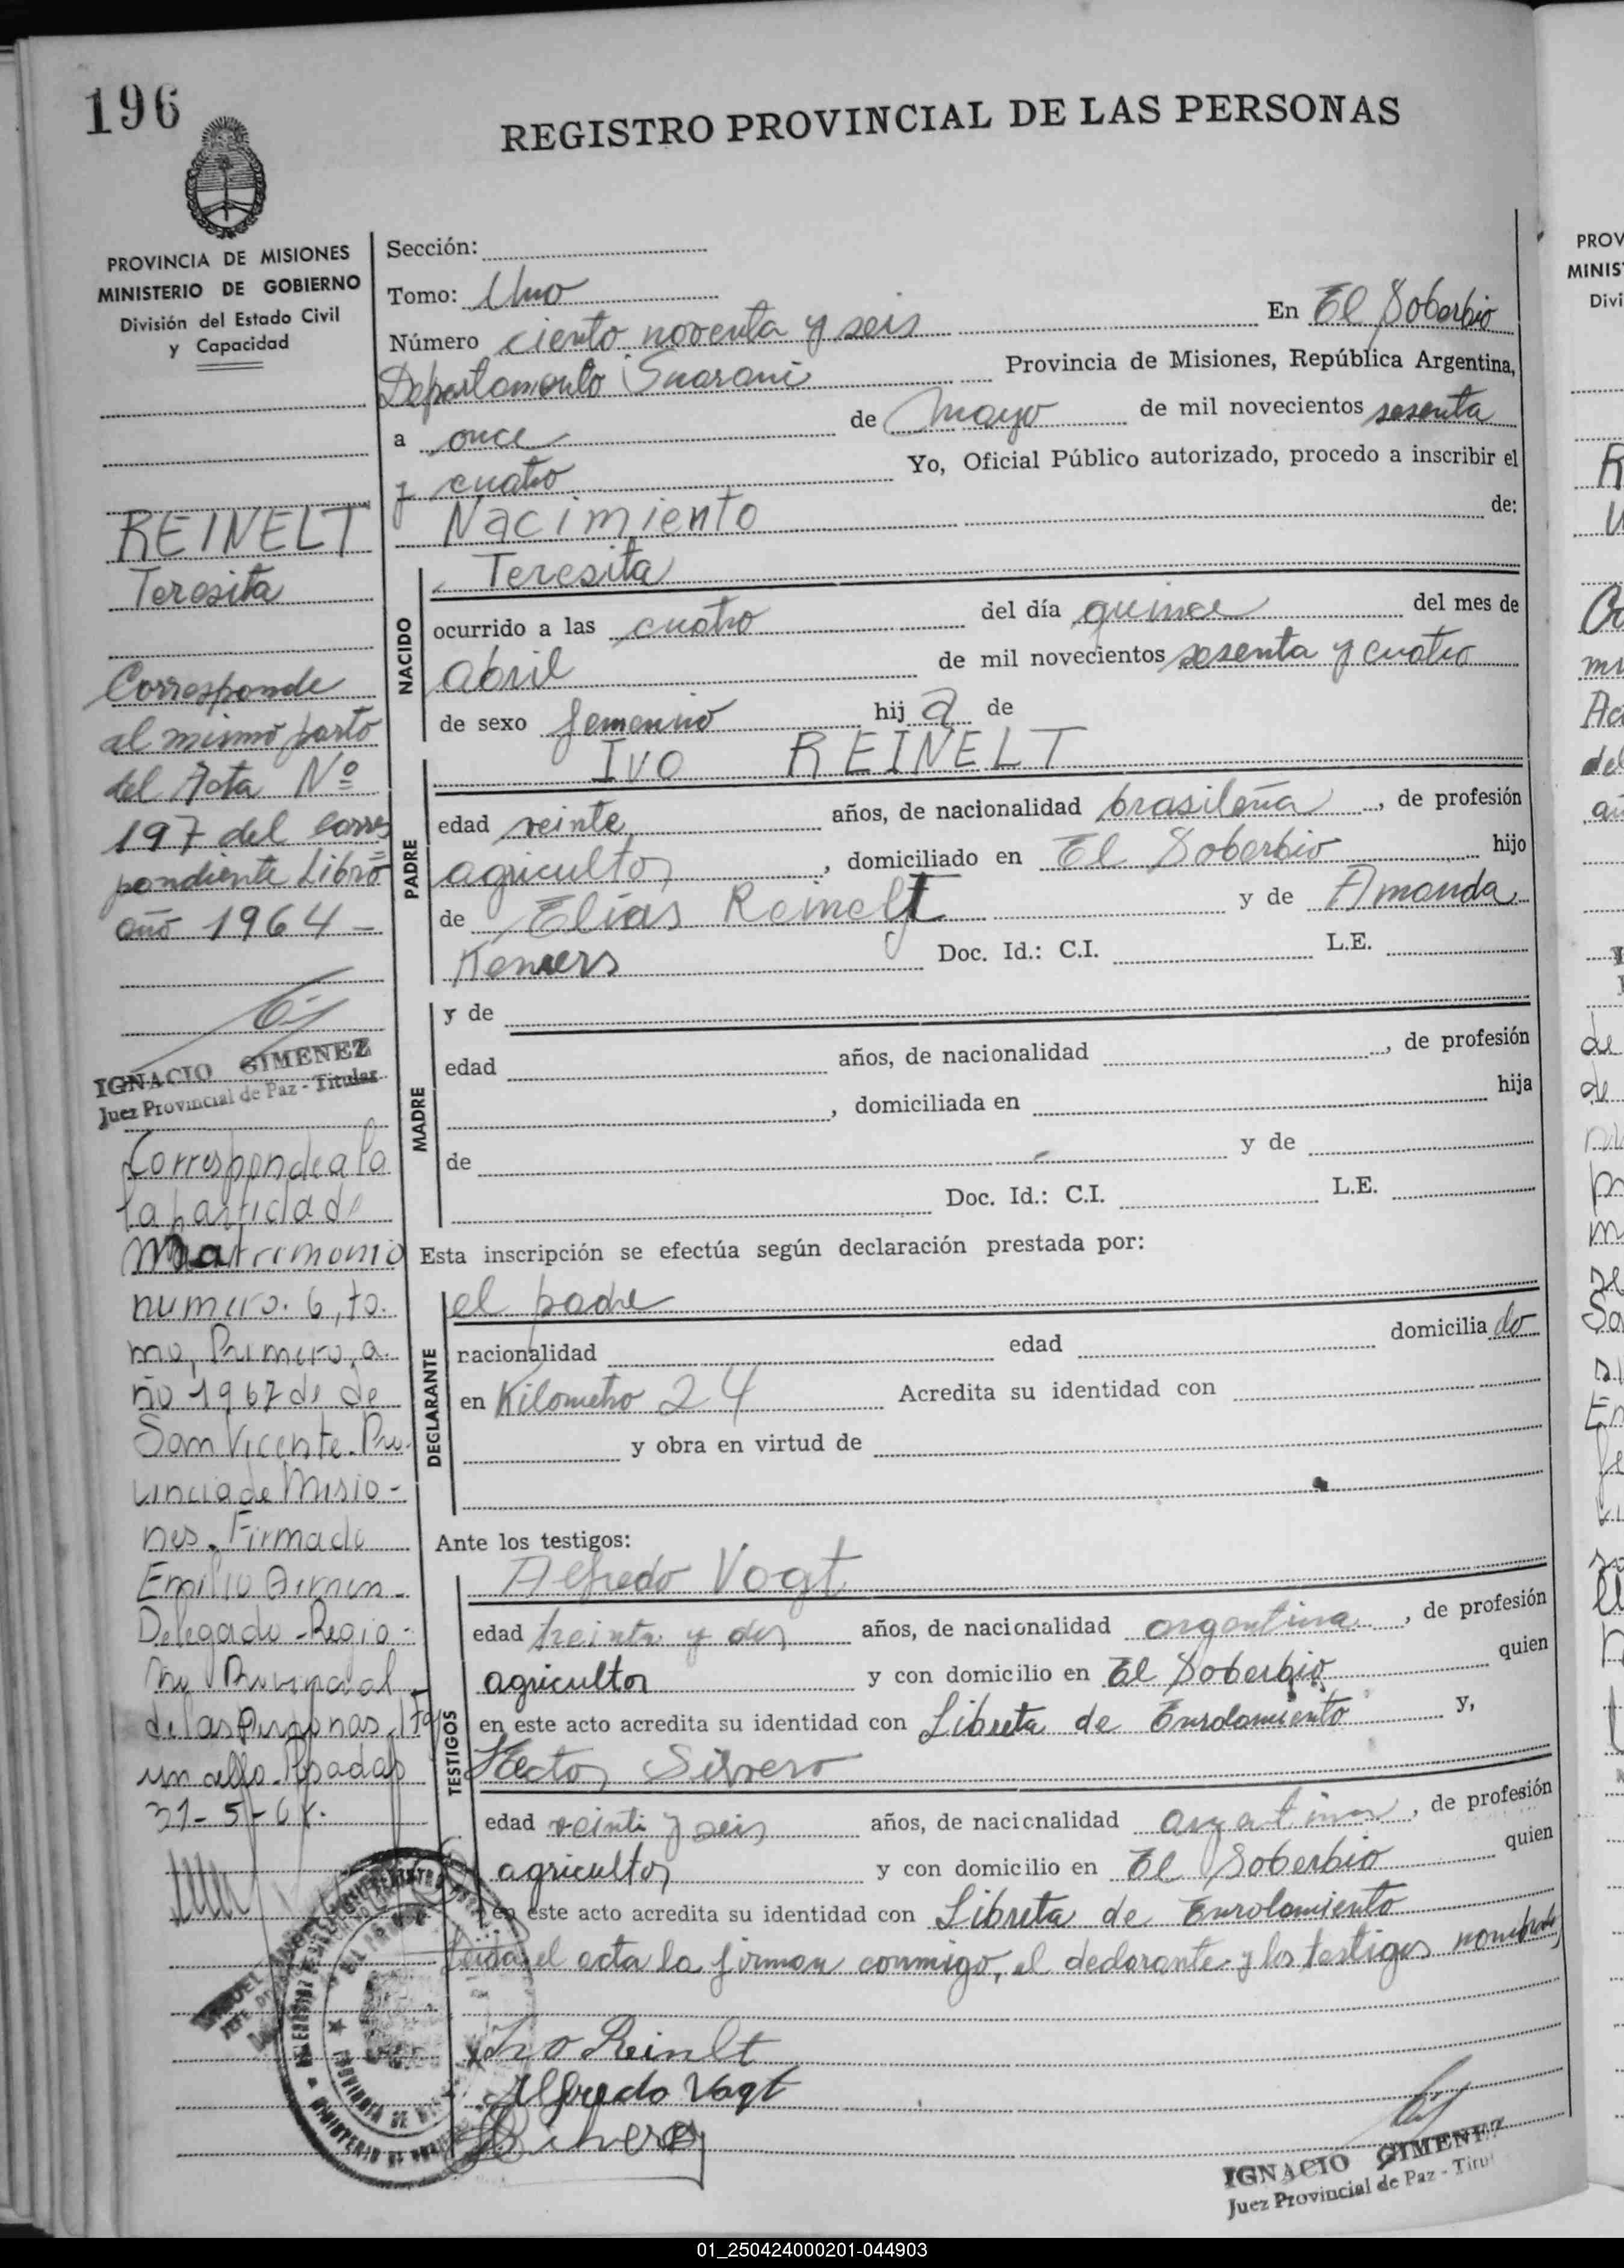 196
REGISTRO PROVINCIAL DE LAS PERSONAS
PROVINCIA DE MISIONES
MINISTERIO DE GOBIERNO
División del Estado Civil
y Capacidad
REINELT
Teresita
Corresponde
al mismo parto
del Acta Nº
197 del corres
pondiente Libro
año 1964 -
IGNACIO GIMENEZ
Juez Provincial de Paz - Titular
Corresponde a la
la partida de
Matrimonio
numero. 6, to.
mo, Primero, a.
ño 1967 de de
San Vicente. Pro.
vincia de Misio-
nes. Firmado
Emilio
Delegado - Regis-
tro Provincial
de las Personas.
un sello. Posadas
31-5-6
Sección:
Tomo: Uno
Número ciento noventa y seis En El Soberbio
Departamento Guarani Provincia de Misiones, República Argentina,
a once de Mayo de mil novecientos sesenta
y cuatro Yo, Oficial Público autorizado, procedo a inscribir el
Nacimiento de:
NACIDO
Teresita
ocurrido a las cuatro del día quince del mes de
abril de mil novecientos sesenta y cuatro
de sexo femenino hij a de
PADRE
Ivo REINELT
edad veinte años, de nacionalidad brasileña, de profesión
agricultor, domiciliado en El Soberbio hijo
de Elías Reinelt y de Amanda
Doc. Id.: C.I. L.E.
MADRE
y de
edad años, de nacionalidad , de profesión
, domiciliada en hija
de y de
Doc. Id.: C.I. L.E.
Esta inscripción se efectúa según declaración prestada por:
DECLARANTE
el padre
nacionalidad edad domicilia do
en Kilometro 24 Acredita su identidad con
y obra en virtud de
Ante los testigos:
TESTIGOS
Alfredo Vogt
edad treinta y dos años, de nacionalidad argentina, de profesión
agricultor y con domicilio en El Soberbio quien
en este acto acredita su identidad con Libreta de Enrolamiento y,
Hector Silvero
edad veinti y seis años, de nacionalidad argentina, de profesión
agricultor y con domicilio en El Soberbio quien
en este acto acredita su identidad con Libreta de Enrolamiento
Leida el acta la firman conmigo, el declarante y los testigos nombrados
Ivo Reinelt
Alfredo Vogt
Silvero
IGNACIO GIMENEZ
Juez Provincial de Paz - Titu
01_250424000201-044903